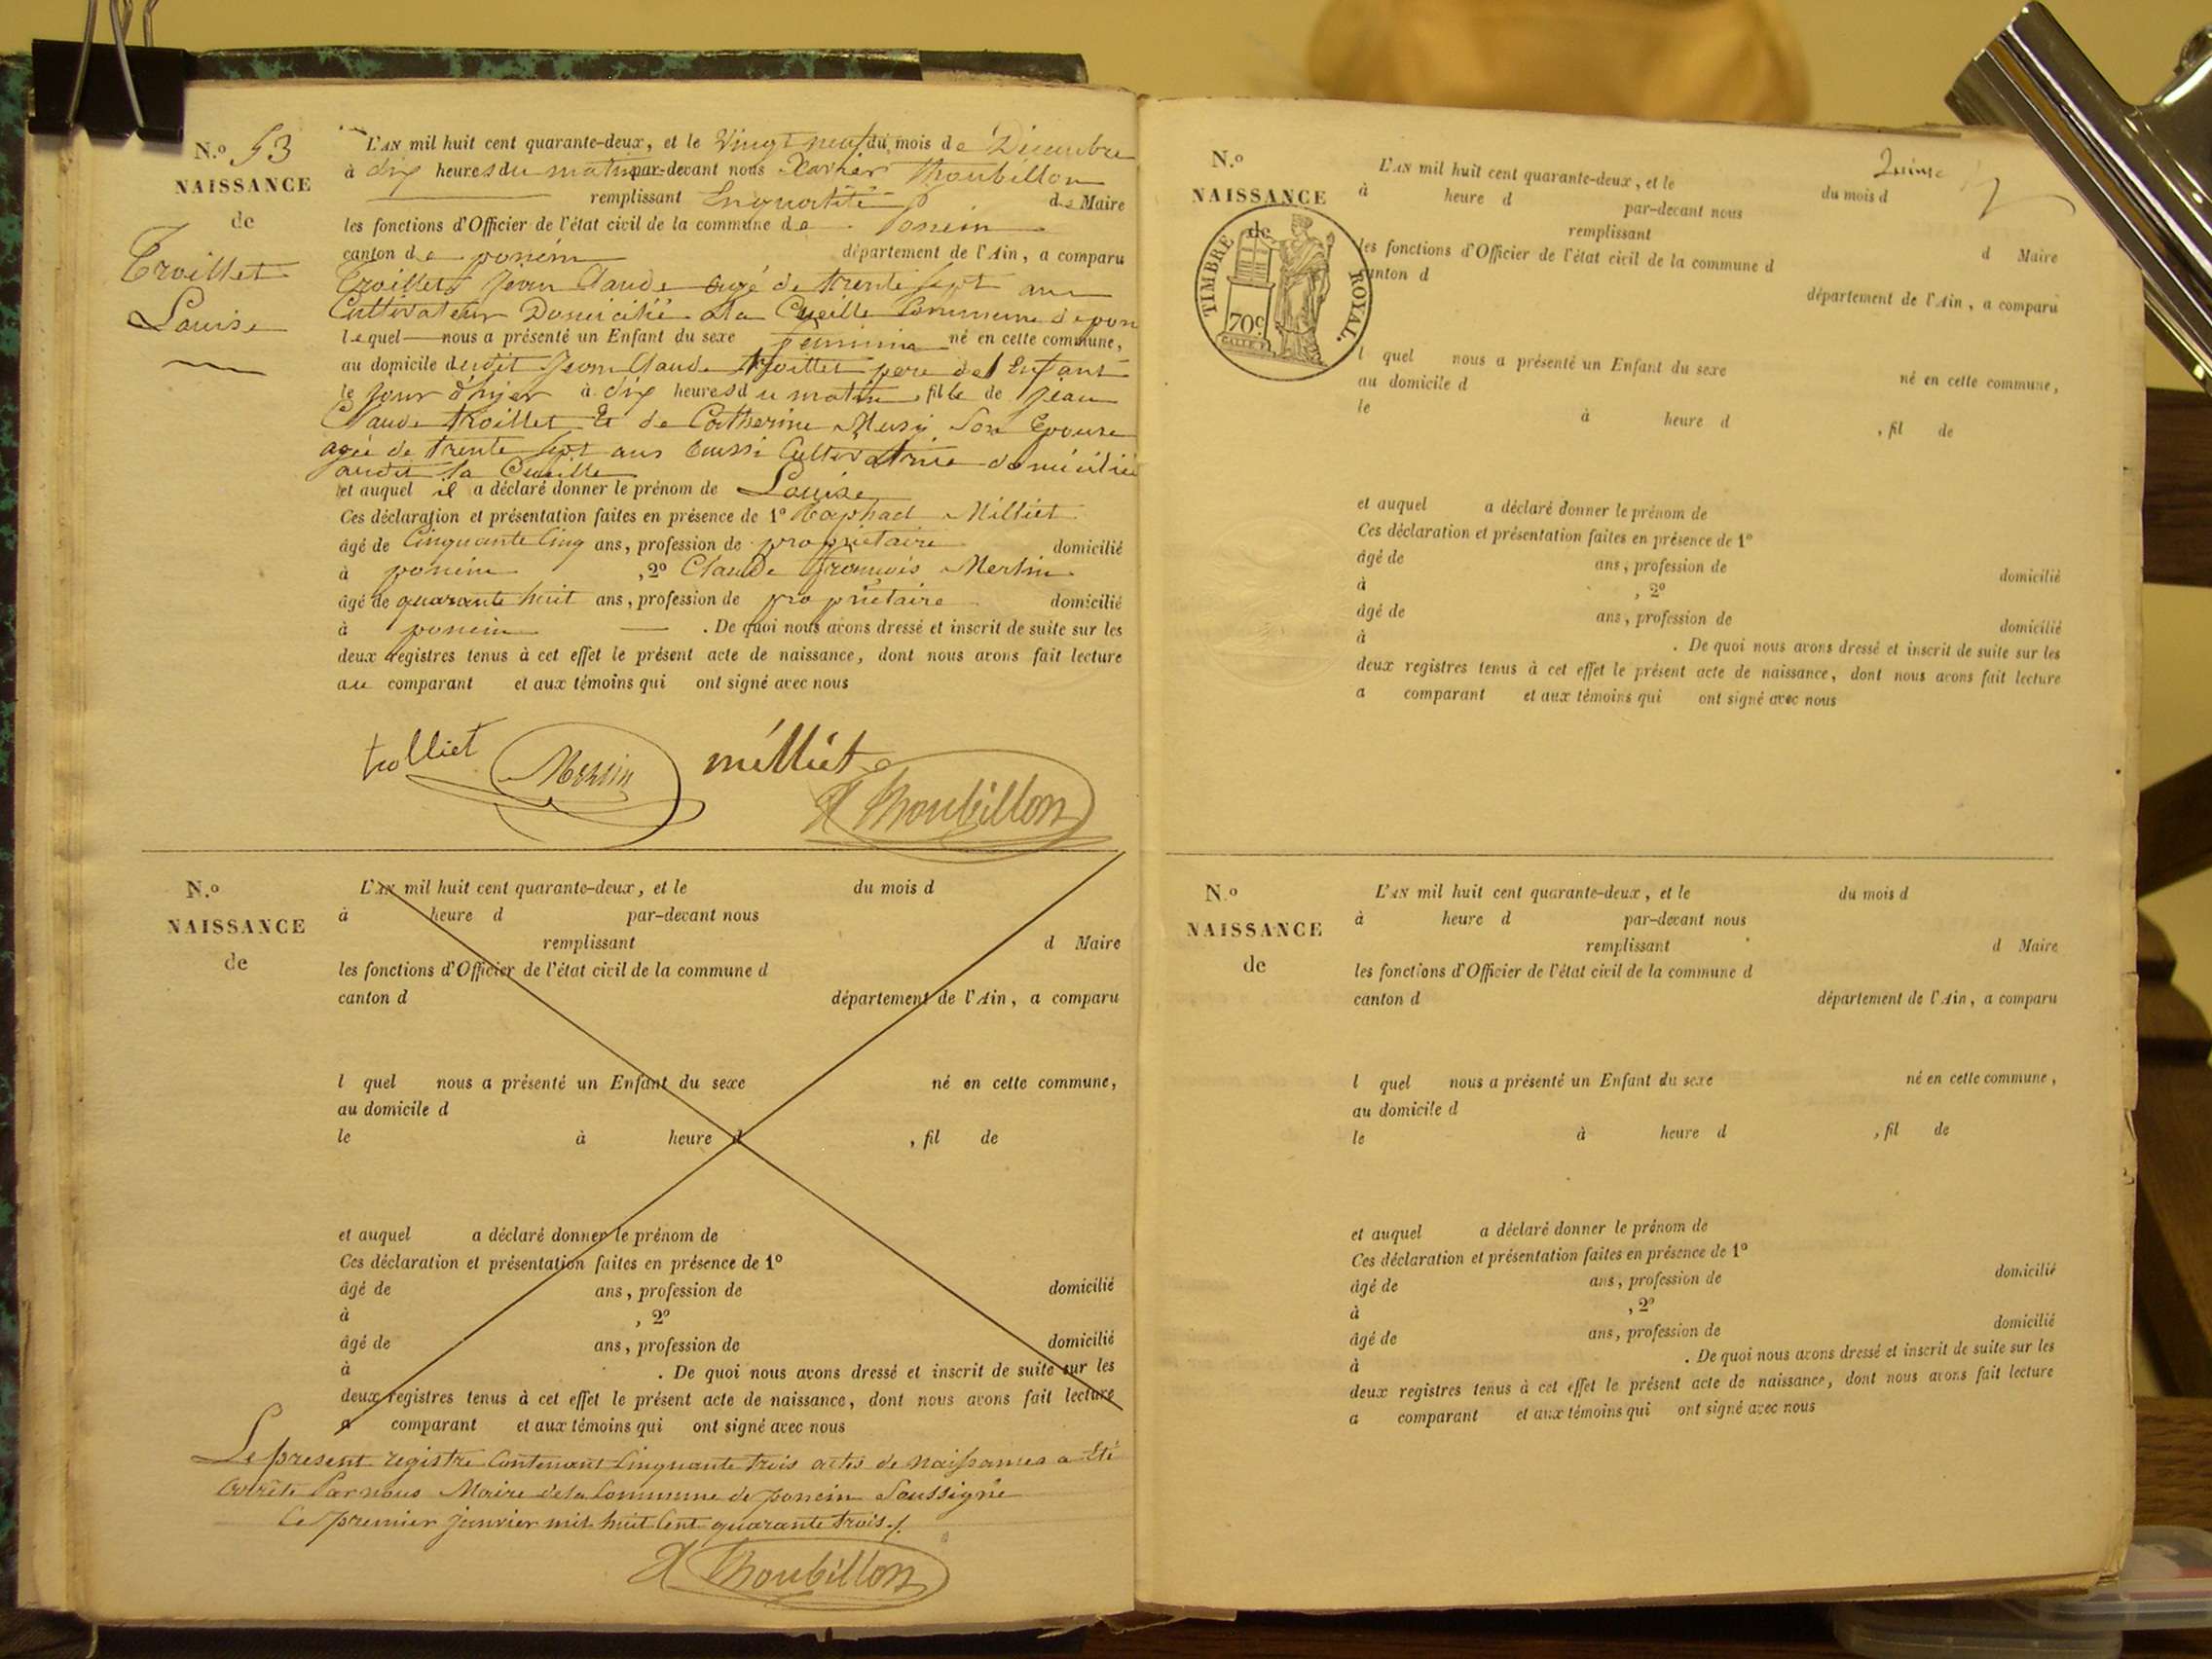 N.o 53
NAISSANCE
de
Troillet
Louise
L'AN mil huit cent quarante-deux, et le Vingt neuf du mois de Décembre
à dix heures du matin par-devant nous Xavier Thoubillon
remplissant En qualité de Maire
les fonctions d'Officier de l'état civil de la commune de Poncin
canton de poncin département de l'Ain, a comparu
Troillet Jean Claude agé de trente sept ans
Cultivateur Domicilié à la Cueille Commune de pon
lequel nous a présenté un Enfant du sexe feminin né en cette commune,
au domicile dudit Jean Claude troillet pere de l'Enfant
le jour d'hier à dix heures du matin, fille de Jean
Claude troillet Et de Catherine Musy Son Epouse
agée de trente sept ans aussi Cultivatrice domiciliée
audit la Cueille
et auquel il a déclaré donner le prénom de Louise
Ces déclaration et présentation faites en présence de 1o Raphael Milliet
âgé de Cinquante Cinq ans, profession de propriétaire domicilié
à poncin , 2o Claude François Merlin
âgé de quarante huit ans, profession de propriétaire domicilié
à poncin . De quoi nous avons dressé et inscrit de suite sur les
deux registres tenus à cet effet le présent acte de naissance, dont nous avons fait lecture
au comparant et aux témoins qui ont signé avec nous
trolliet milliet
X Thoubillon
N.o
NAISSANCE
de
L'AN mil huit cent quarante-deux, et le du mois d
à heure d par-devant nous
remplissant d Maire
les fonctions d'Officier de l'état civil de la commune d
canton d département de l'Ain, a comparu
l quel nous a présenté un Enfant du sexe né en cette commune,
au domicile d
le à heure d , fil de
et auquel a déclaré donner le prénom de
Ces déclaration et présentation faites en présence de 1o
âgé de ans, profession de domicilié
à , 2o
âgé de ans, profession de domicilié
à . De quoi nous avons dressé et inscrit de suite sur les
deux registres tenus à cet effet le présent acte de naissance, dont nous avons fait lecture
a comparant et aux témoins qui ont signé avec nous
Le present registre Contenant Cinquante trois actes de Naissances a Eté
arrêté Par nous Maire de la Commune de poncin Soussigné
Le premier janvier mil huit Cent quarante trois ./.
X Thoubillon
N.o
NAISSANCE
de
TIMBRE ROYAL.
70c
L'AN mil huit cent quarante-deux, et le du mois d
à heure d par-devant nous
remplissant d Maire
les fonctions d'Officier de l'état civil de la commune d
canton d département de l'Ain, a comparu
l quel nous a présenté un Enfant du sexe né en cette commune,
au domicile d
le à heure d , fil de
et auquel a déclaré donner le prénom de
Ces déclaration et présentation faites en présence de 1o
âgé de ans, profession de domicilié
à , 2o
âgé de ans, profession de domicilié
à . De quoi nous avons dressé et inscrit de suite sur les
deux registres tenus à cet effet le présent acte de naissance, dont nous avons fait lecture
a comparant et aux témoins qui ont signé avec nous
N.o
NAISSANCE
de
L'AN mil huit cent quarante-deux, et le du mois d
à heure d par-devant nous
remplissant d Maire
les fonctions d'Officier de l'état civil de la commune d
canton d département de l'Ain, a comparu
l quel nous a présenté un Enfant du sexe né en cette commune,
au domicile d
le à heure d , fil de
et auquel a déclaré donner le prénom de
Ces déclaration et présentation faites en présence de 1o
âgé de ans, profession de domicilié
à , 2o
âgé de ans, profession de domicilié
à . De quoi nous avons dressé et inscrit de suite sur les
deux registres tenus à cet effet le présent acte de naissance, dont nous avons fait lecture
a comparant et aux témoins qui ont signé avec nous